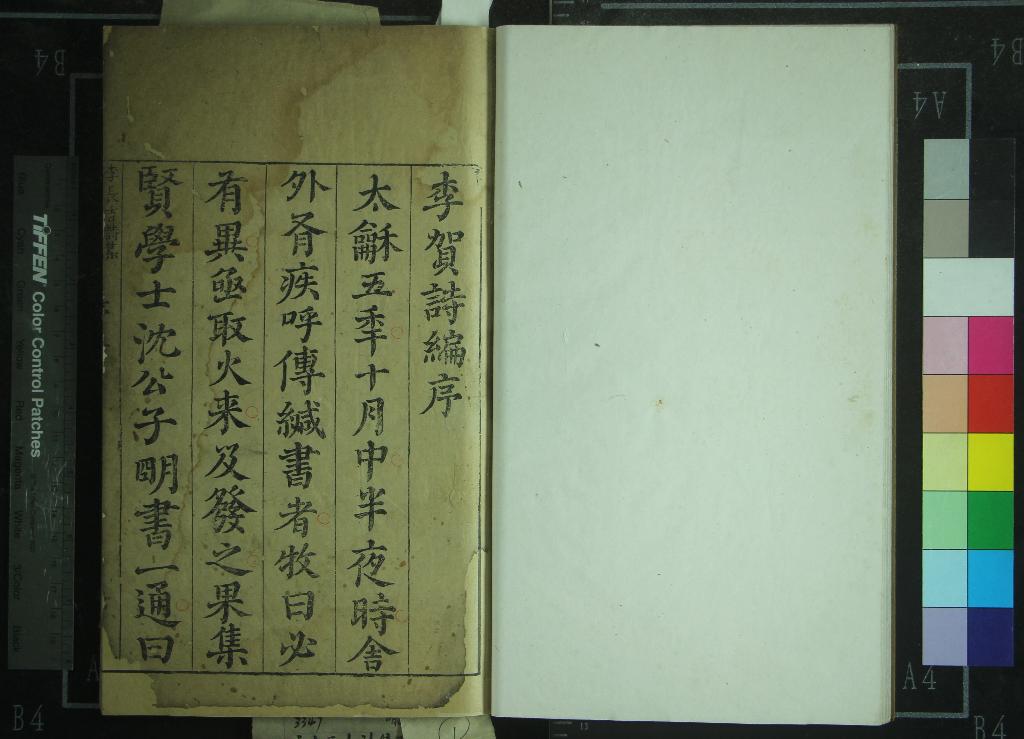 李賀詩編序
太龢五秊十月中半夜時舍
外有疾呼傳緘書者牧曰必
有異亟取火来及發之果集
賢學士沈公子明書一通曰
TIFFEN Color Control Patches
B4
B4
A4
A4
A4
B4
B4
3347